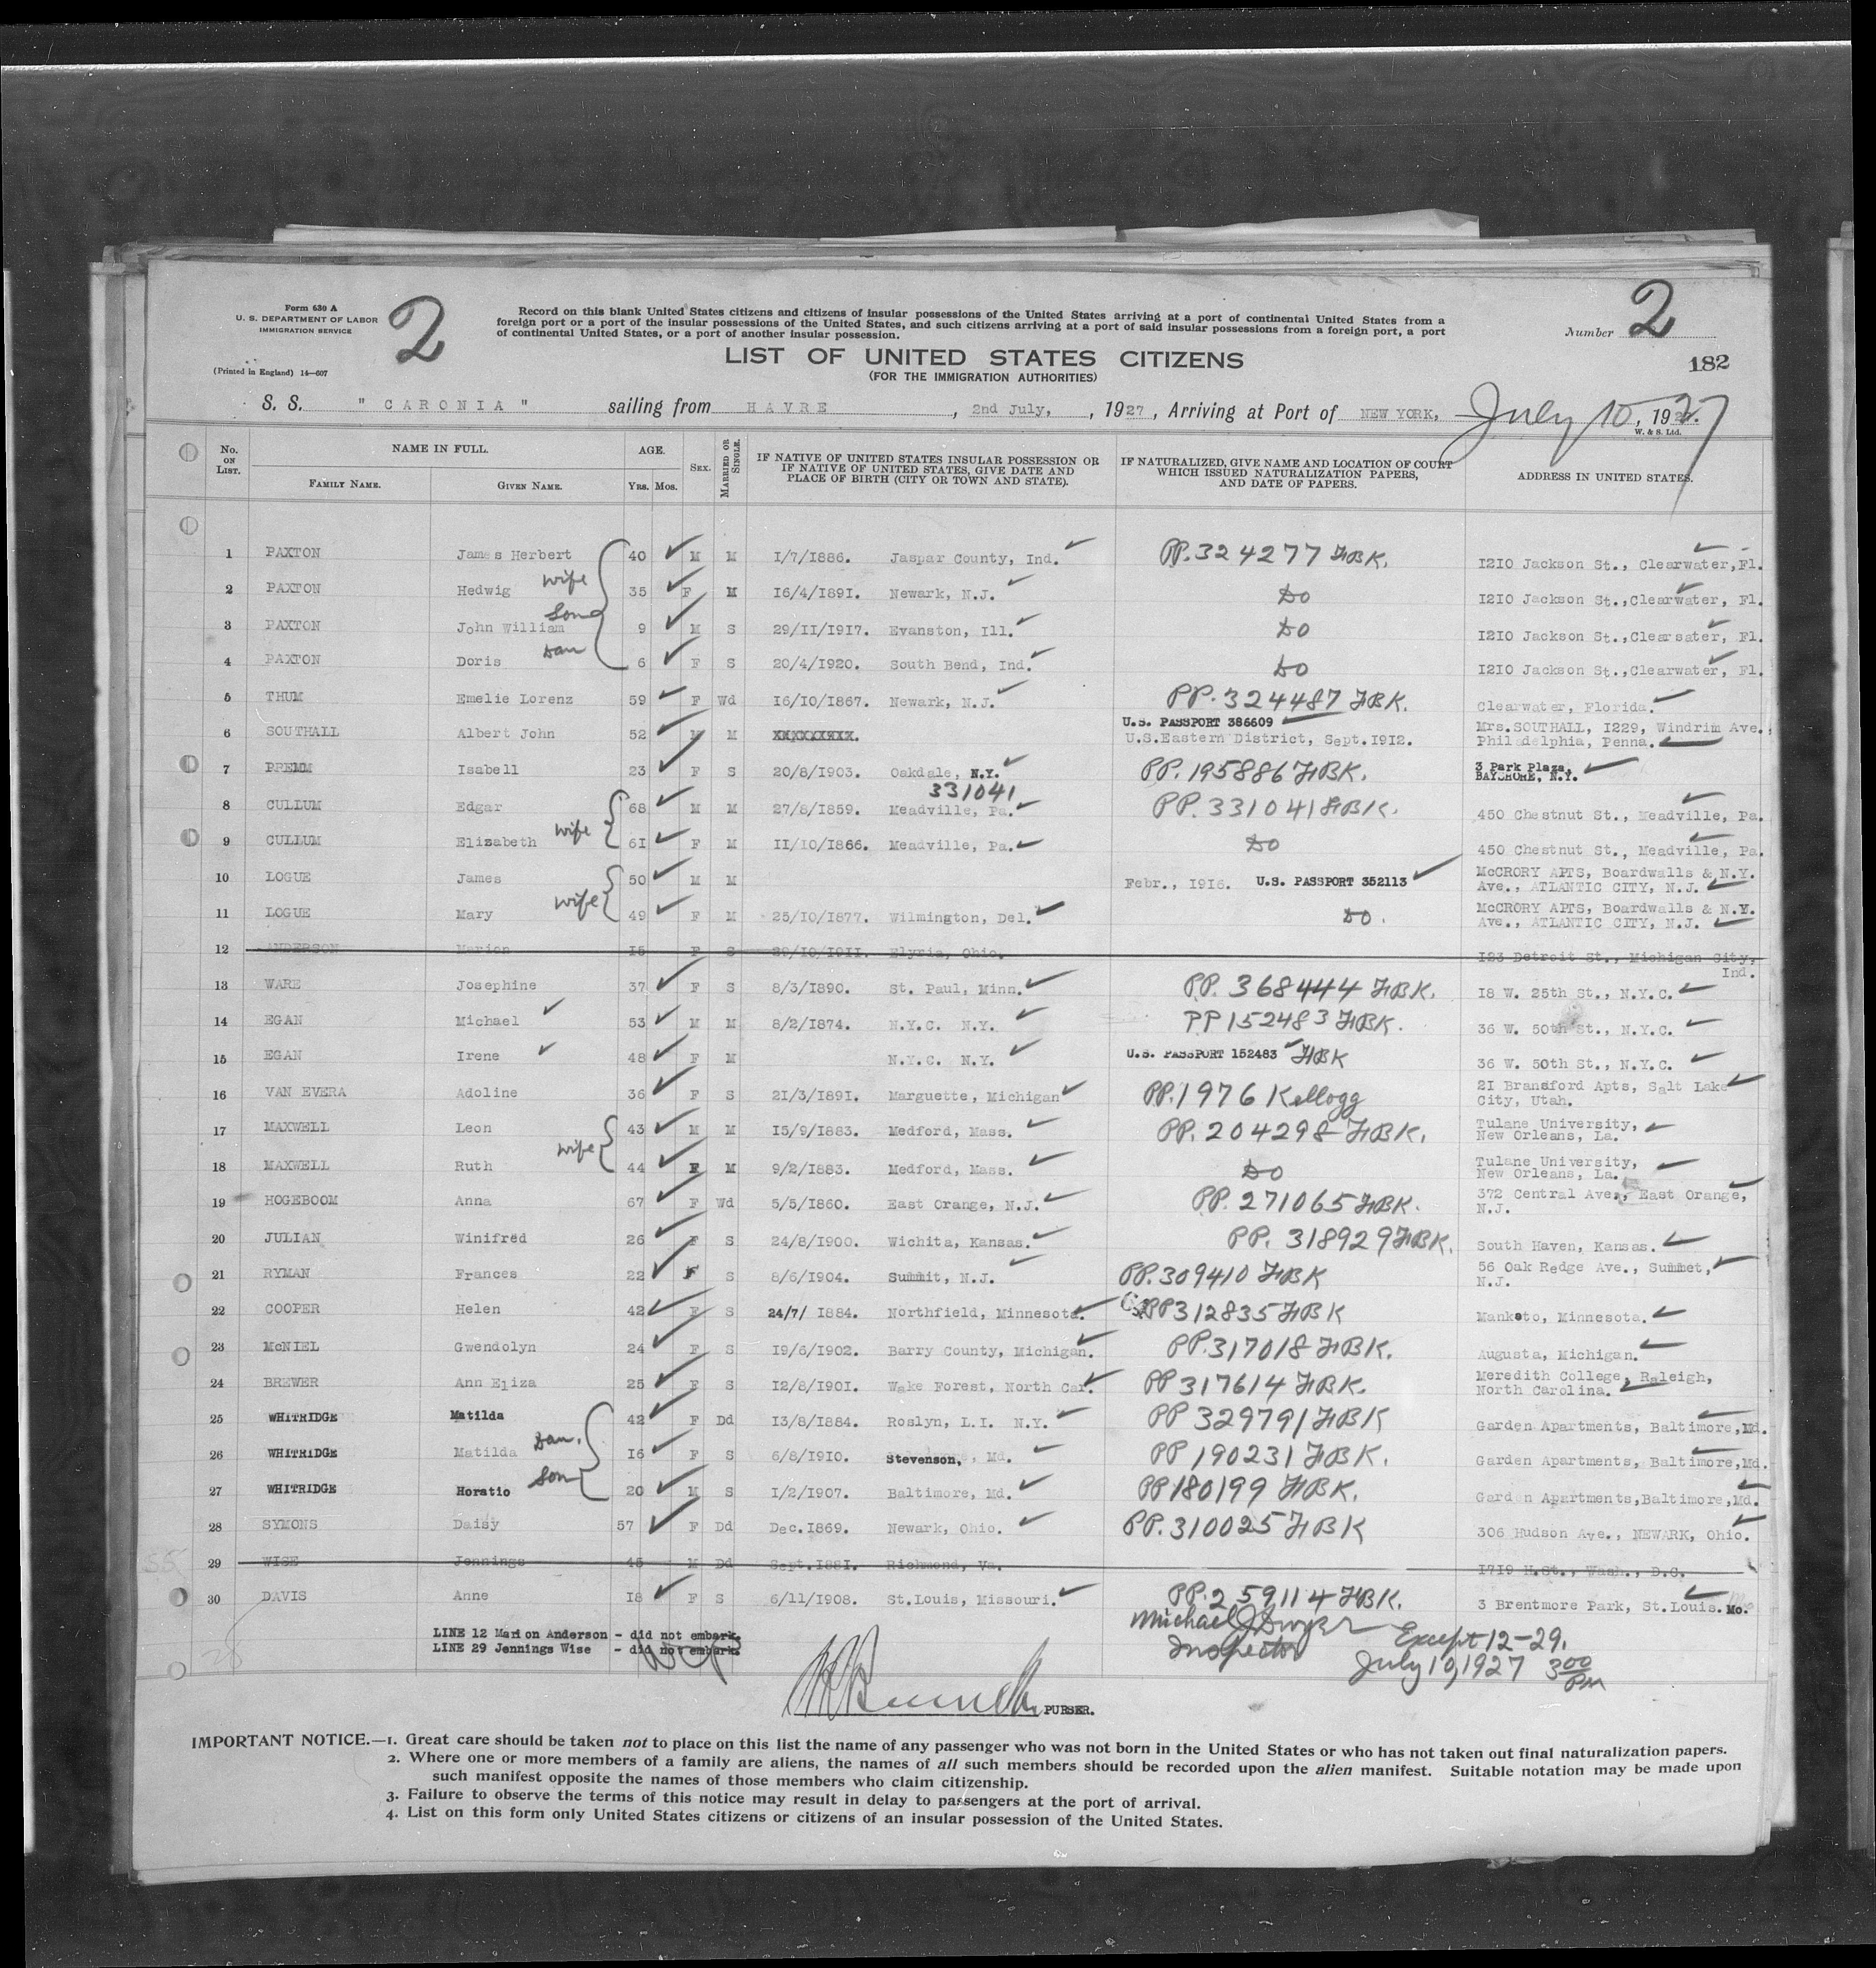 Form 630 A
U. S. DEPARTMENT OF LABOR
IMMIGRATION SERVICE
(Printed in England) 14—607
2
Record on this blank United States citizens and citizens of insular possessions of the United States arriving at a port of continental United States from a
foreign port or a port of the insular possessions of the United States, and such citizens arriving at a port of said insular possessions from a foreign port, a port
of continental United States, or a port of another insular possession.
Number 2
LIST OF UNITED STATES CITIZENS
(FOR THE IMMIGRATION AUTHORITIES)
182
S. S. " CARONIA " sailing from HAVRE, 2nd July, , 1927, Arriving at Port of NEW YORK, July 10, 1927
W. & S. Ltd.
No. ON LIST. NAME IN FULL. FAMILY NAME. GIVEN NAME. AGE. Yrs. Mos. SEX. MARRIED OR SINGLE. IF NATIVE OF UNITED STATES INSULAR POSSESSION OR IF NATIVE OF UNITED STATES, GIVE DATE AND PLACE OF BIRTH (CITY OR TOWN AND STATE). IF NATURALIZED, GIVE NAME AND LOCATION OF COURT WHICH ISSUED NATURALIZATION PAPERS, AND DATE OF PAPERS. ADDRESS IN UNITED STATES.
1 PAXTON James Herbert 40 M M I/7/I886. Jaspar County, Ind. PP. 324277 HBK. I2I0 Jackson St., Clearwater, Fl.
2 PAXTON Hedwig wife 35 F M I6/4/I89I. Newark, N.J. Do I2I0 Jackson St., Clearwater, Fl.
3 PAXTON John William Son 9 M S 29/II/I9I7. Evanston, Ill. Do I2I0 Jackson St., Clearsater, Fl.
4 PAXTON Doris Dau 6 F S 20/4/I920. South Bend, Ind. Do I2I0 Jackson St., Clearwater, Fl.
5 THUM Emelie Lorenz 59 F Wd I6/I0/I867. Newark, N.J. PP. 324487 HBK. Clearwater, Florida.
6 SOUTHALL Albert John 52 M M XXXXXXXXX. U.S. PASSPORT 386609 U.S.Eastern District, Sept.I9I2. Mrs.SOUTHALL, I229, Windrim Ave., Philadelphia, Penna.
7 PREMM Isabell 23 F S 20/8/I903. Oakdale, N.Y. PP. 195886 HBK. 3 Park Plaza, BAYSHORE, N.Y.
331041
8 CULLUM Edgar 68 M M 27/8/I859. Meadville, Pa. PP. 331041 HBK. 450 Chestnut St., Meadville, Pa.
9 CULLUM Elizabeth wife 6I F M II/I0/I866. Meadville, Pa. Do 450 Chestnut St., Meadville, Pa.
10 LOGUE James 50 M M Febr., I9I6. U.S. PASSPORT 352113 McCRORY APTS, Boardwalls & N.Y. Ave., ATLANTIC CITY, N.J.
11 LOGUE Mary wife 49 F M 25/I0/I877. Wilmington, Del. Do. McCRORY APTS, Boardwalls & N.Y. Ave., ATLANTIC CITY, N.J.
12 ANDERSON Marion I5 F S 29/I0/I9II. Elyria, Ohio. I23 Detroit St., Michigan City, Ind.
13 WARE Josephine 37 F S 8/3/I890. St. Paul, Minn. PP. 368444 HBK. I8 W. 25th St., N.Y.C.
14 EGAN Michael 53 M M 8/2/I874. N.Y.C. N.Y. PP 152483 HBK. 36 W. 50th St., N.Y.C.
15 EGAN Irene 48 F M N.Y.C. N.Y. U.S. PASSPORT 152483 HBK 36 W. 50th St., N.Y.C.
16 VAN EVERA Adoline 36 F S 2I/3/I89I. Marguette, Michigan PP. 1976 Kellogg 2I Bransford Apts, Salt Lake City, Utah.
17 MAXWELL Leon 43 M M I5/9/I883. Medford, Mass. PP. 204298 HBK. Tulane University, New Orleans, La.
18 MAXWELL Ruth wife 44 F M 9/2/I883. Medford, Mass. Do Tulane University, New Orleans, La.
19 HOGEBOOM Anna 67 F Wd 5/5/I860. East Orange, N.J. PP. 271065 HBK. 372 Central Ave., East Orange, N.J.
20 JULIAN Winifred 26 F S 24/8/I900. Wichita, Kansas. PP. 318929 HBK. South Haven, Kansas.
21 RYMAN Frances 22 F S 8/6/I904. Summit, N.J. PP. 309410 HBK 56 Oak Redge Ave., Summet, N.J.
22 COOPER Helen 42 F S 24/7/ I884. Northfield, Minnesota. PP 312835 HBK Manketo, Minnesota.
23 McNIEL Gwendolyn 24 F S I9/6/I902. Barry County, Michigan. PP. 317018 HBK. Augusta, Michigan.
24 BREWER Ann Eliza 25 F S I2/8/I90I. Wake Forest, North Car. PP 317614 HBK. Meredith College, Raleigh, North Carolina.
25 WHITRIDGE Matilda 42 F Dd I3/8/I884. Roslyn, L.I. N.Y. PP 329791 HBK Garden Apartments, Baltimore, Md.
26 WHITRIDGE Matilda Dau. I6 F S 6/8/I9I0. Stevenson, Md. PP 190231 HBK. Garden Apartments, Baltimore, Md.
27 WHITRIDGE Horatio Son 20 M S I/2/I907. Baltimore, Md. PP 180199 HBK. Garden Apartments, Baltimore, Md.
28 SYMONS Daisy 57 F Dd Dec. I869. Newark, Ohio. PP. 310025 HBK 306 Hudson Ave., NEWARK, Ohio.
29 WISE Jennings 45 M Dd Sept. I88I. Richmond, Va. I7I9 H.St., Wash., D.C.
30 DAVIS Anne I8 F S 6/II/I908. St.Louis, Missouri. PP. 259114 HBK. 3 Brentmore Park, St.Louis. Mo.
LINE 12 Marion Anderson - did not embark.
LINE 29 Jennings Wise - did not embark.
Michael J Dwyer
Inspector
Except 12-29.
July 10, 1927 3 00 PM
PURSER.
IMPORTANT NOTICE.—1. Great care should be taken not to place on this list the name of any passenger who was not born in the United States or who has not taken out final naturalization papers.
2. Where one or more members of a family are aliens, the names of all such members should be recorded upon the alien manifest. Suitable notation may be made upon
such manifest opposite the names of those members who claim citizenship.
3. Failure to observe the terms of this notice may result in delay to passengers at the port of arrival.
4. List on this form only United States citizens or citizens of an insular possession of the United States.